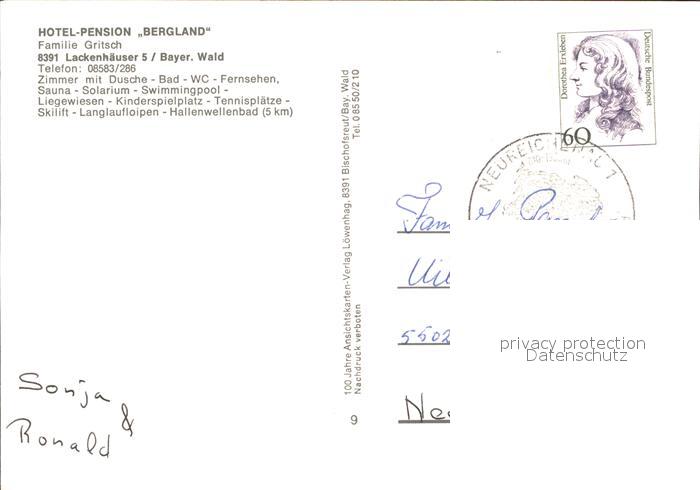 HOTEL-PENSION „BERGLAND“
Familie Gritsch
8391 Lackenhäuser 5 / Bayer. Wald
Telefon: 08583/286
Zimmer mit Dusche - Bad - WC - Fernsehen,
Sauna - Solarium - Swimmingpool -
Liegewiesen - Kinderspielplatz - Tennisplätze -
Skilift - Langlaufloipen - Hallenwellenbad (5 km)
Sonja
&
Ronald
100 Jahre Ansichtskarten-Verlag Löwenhag, 8391 Bischofsreut/Bay. Wald
Nachdruck verboten
Tel. 0 85 50/2 10
9
Dorothea Erxleben
Deutsche Bundespost
60
NEUREICHENAU 1
Fam
5502
privacy protection
Datenschutz